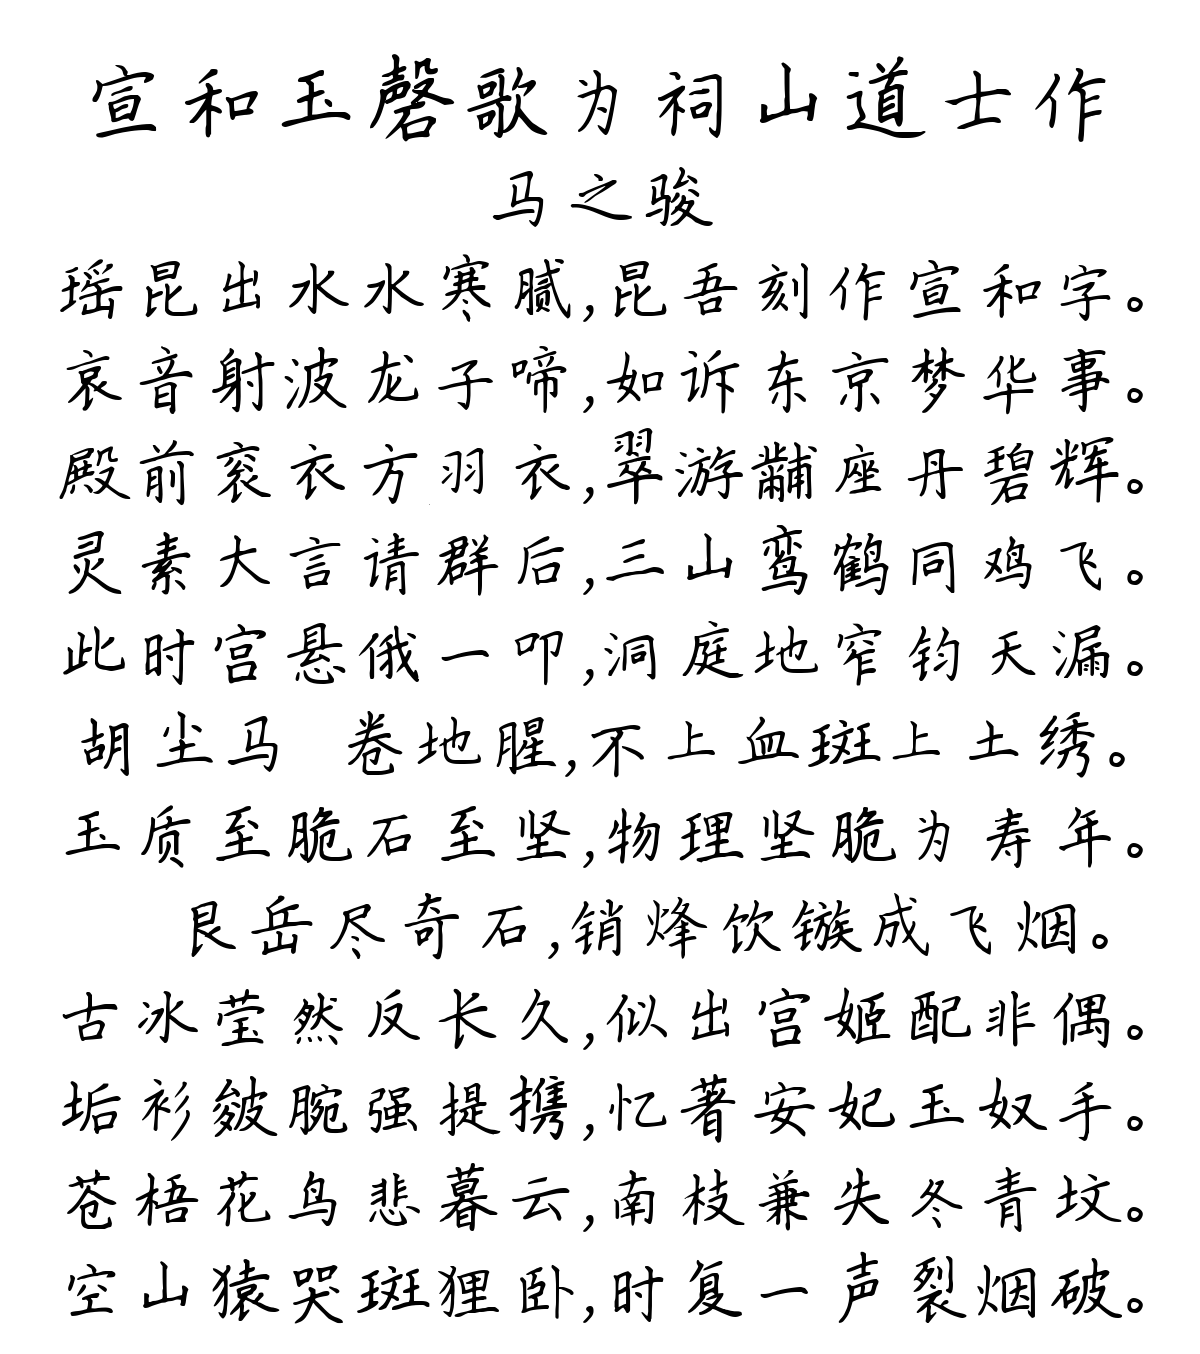 宣和玉磬歌为祠山道士作
马之骏
瑶昆出水水寒腻,昆吾刻作宣和字。
哀音射波龙子啼,如诉东京梦华事。
殿前衮衣方羽衣,翠游黼座丹碧辉。
灵素大言请群后,三山鸾鹤同鸡飞。
此时宫悬俄一叩,洞庭地窄钧天漏。
胡尘马 卷地腥,不上血斑上土绣。
玉质至脆石至坚,物理坚脆为寿年。
艮岳尽奇石,销烽饮镞成飞烟。
古冰莹然反长久,似出宫姬配非偶。
垢衫皴腕强提携,忆著安妃玉奴手。
苍梧花鸟悲暮云,南枝兼失冬青坟。
空山猿哭斑狸卧,时复一声裂烟破。